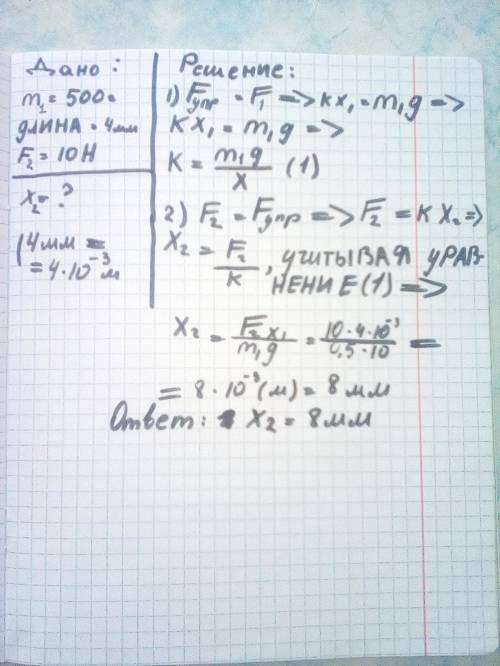 Дано:
m₁ = 500г
длина = 4мм
F₂ = 10Н
x₂ = ?
4мм =
= 4·10⁻³м
Решение:
1) Fупр = F₁ => kx₁ = m₁g =>
kx₁ = m₁g =>
K = m₁g / x (1)
2) F₂ = Fупр => F₂ = kx₂ =>
x₂ = F₂ / k, учитывая урав-
нение (1) =>
x₂ = F₂x₁ / m₁g = 10·4·10⁻³ / 0,5·10 =
= 8·10⁻³(м) = 8мм
Ответ: x₂ = 8мм